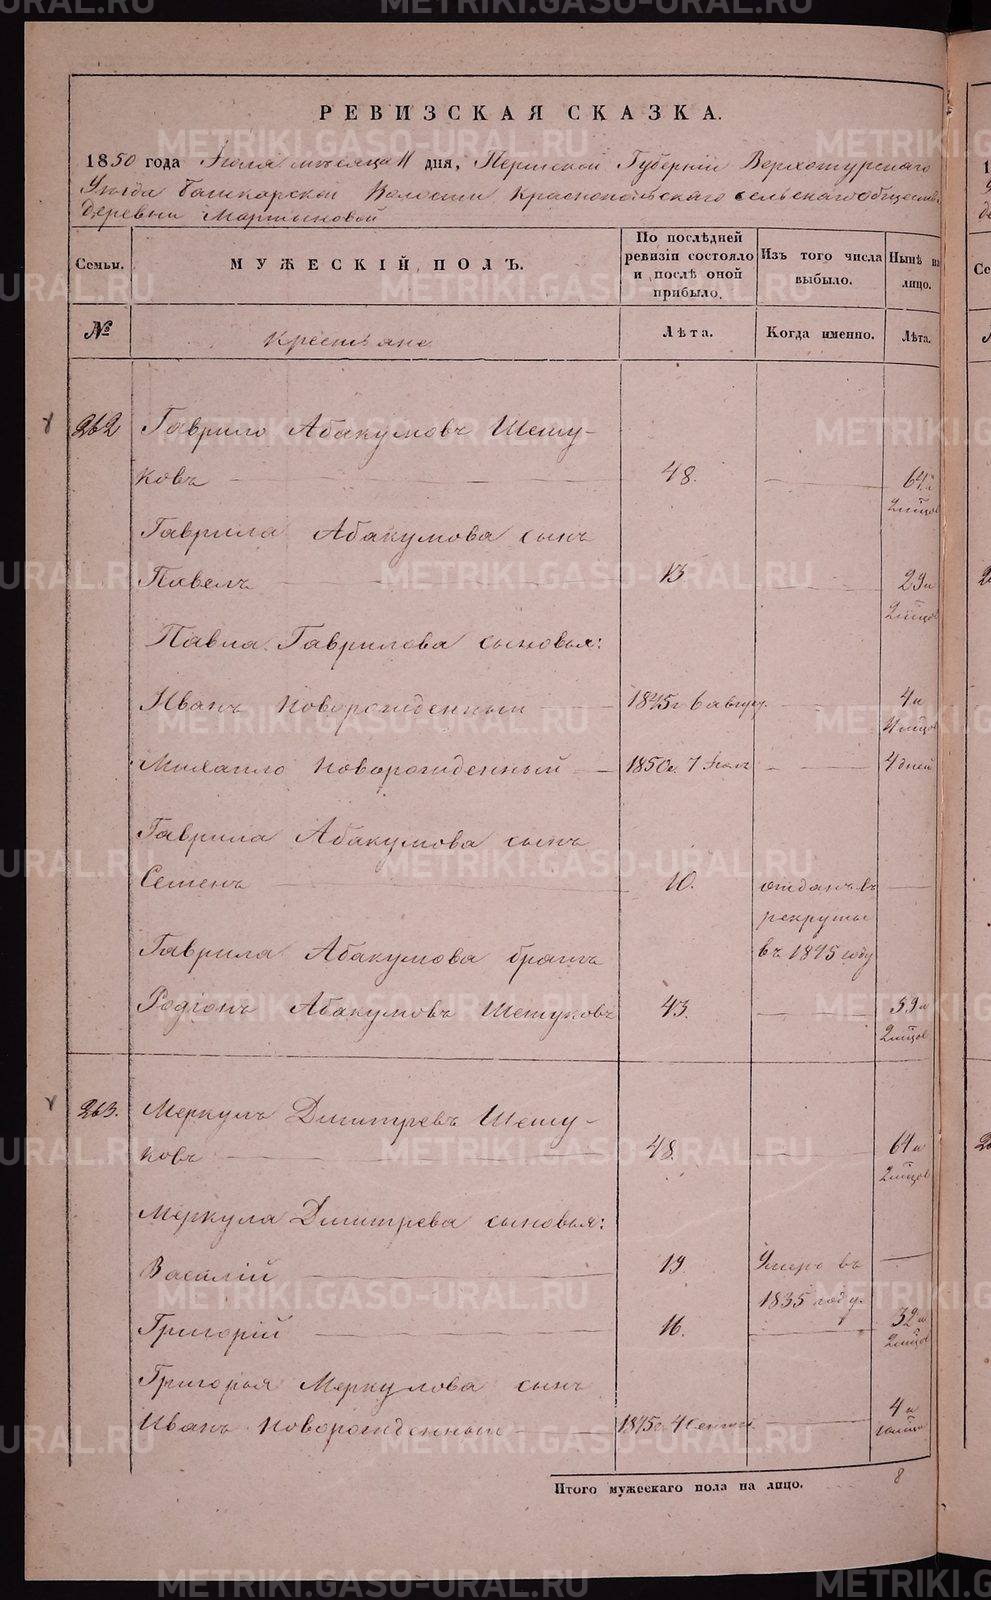 РЕВИЗСКАЯ СКАЗКА.
1850 года Июля мѣсяца 11 дня, Пермской Губернiи Верхотурскаго
Уѣзда Башкарской Волости Краснопольскаго сельскаго общества
Деревни Мартыновой
Семьи.
МУЖЕСКІЙ ПОЛЪ.
По послѣдней ревизіи состояло и послѣ оной прибыло.
Изъ того числа выбыло.
Нынѣ на лицо.
№
Крестьяне
Лѣта.
Когда именно.
Лѣта.
262 Гаврило Абакумовъ Шешу-
ковъ 48. 64 и
2 мѣсцов
Гаврила Абакумова сынъ
Павелъ 13 29 и
2 мѣсцов
Павла Гаврилова сыновья:
Иванъ новорожденный 1845 г. 6 август. 4 и
11 мѣсцов
Михайло новорожденный 1850 г. 7 Июля 4 дней
Гаврила Абакумова сынъ
Семенъ 10. отданъ въ
рекруты
въ 1845 году
Гаврила Абакумова братъ
Родіонъ Абакумовъ Шешуковъ 43. 59 и
2 мѣсцов
263. Меркулъ Дмитревъ Шешу-
ковъ 48. 64 и
2 мѣсцов
Меркула Дмитрева сыновья:
Василій 19 Умеръ въ
1835 году
Григорій 16. 32 и
2 мѣсцов
Григорья Меркулова сынъ
Иванъ новорожденный 1845 г. 4 Сентяб. 4 и
Итого мужескаго пола на лицо. 8
METRIKI.GASO-URAL.RU